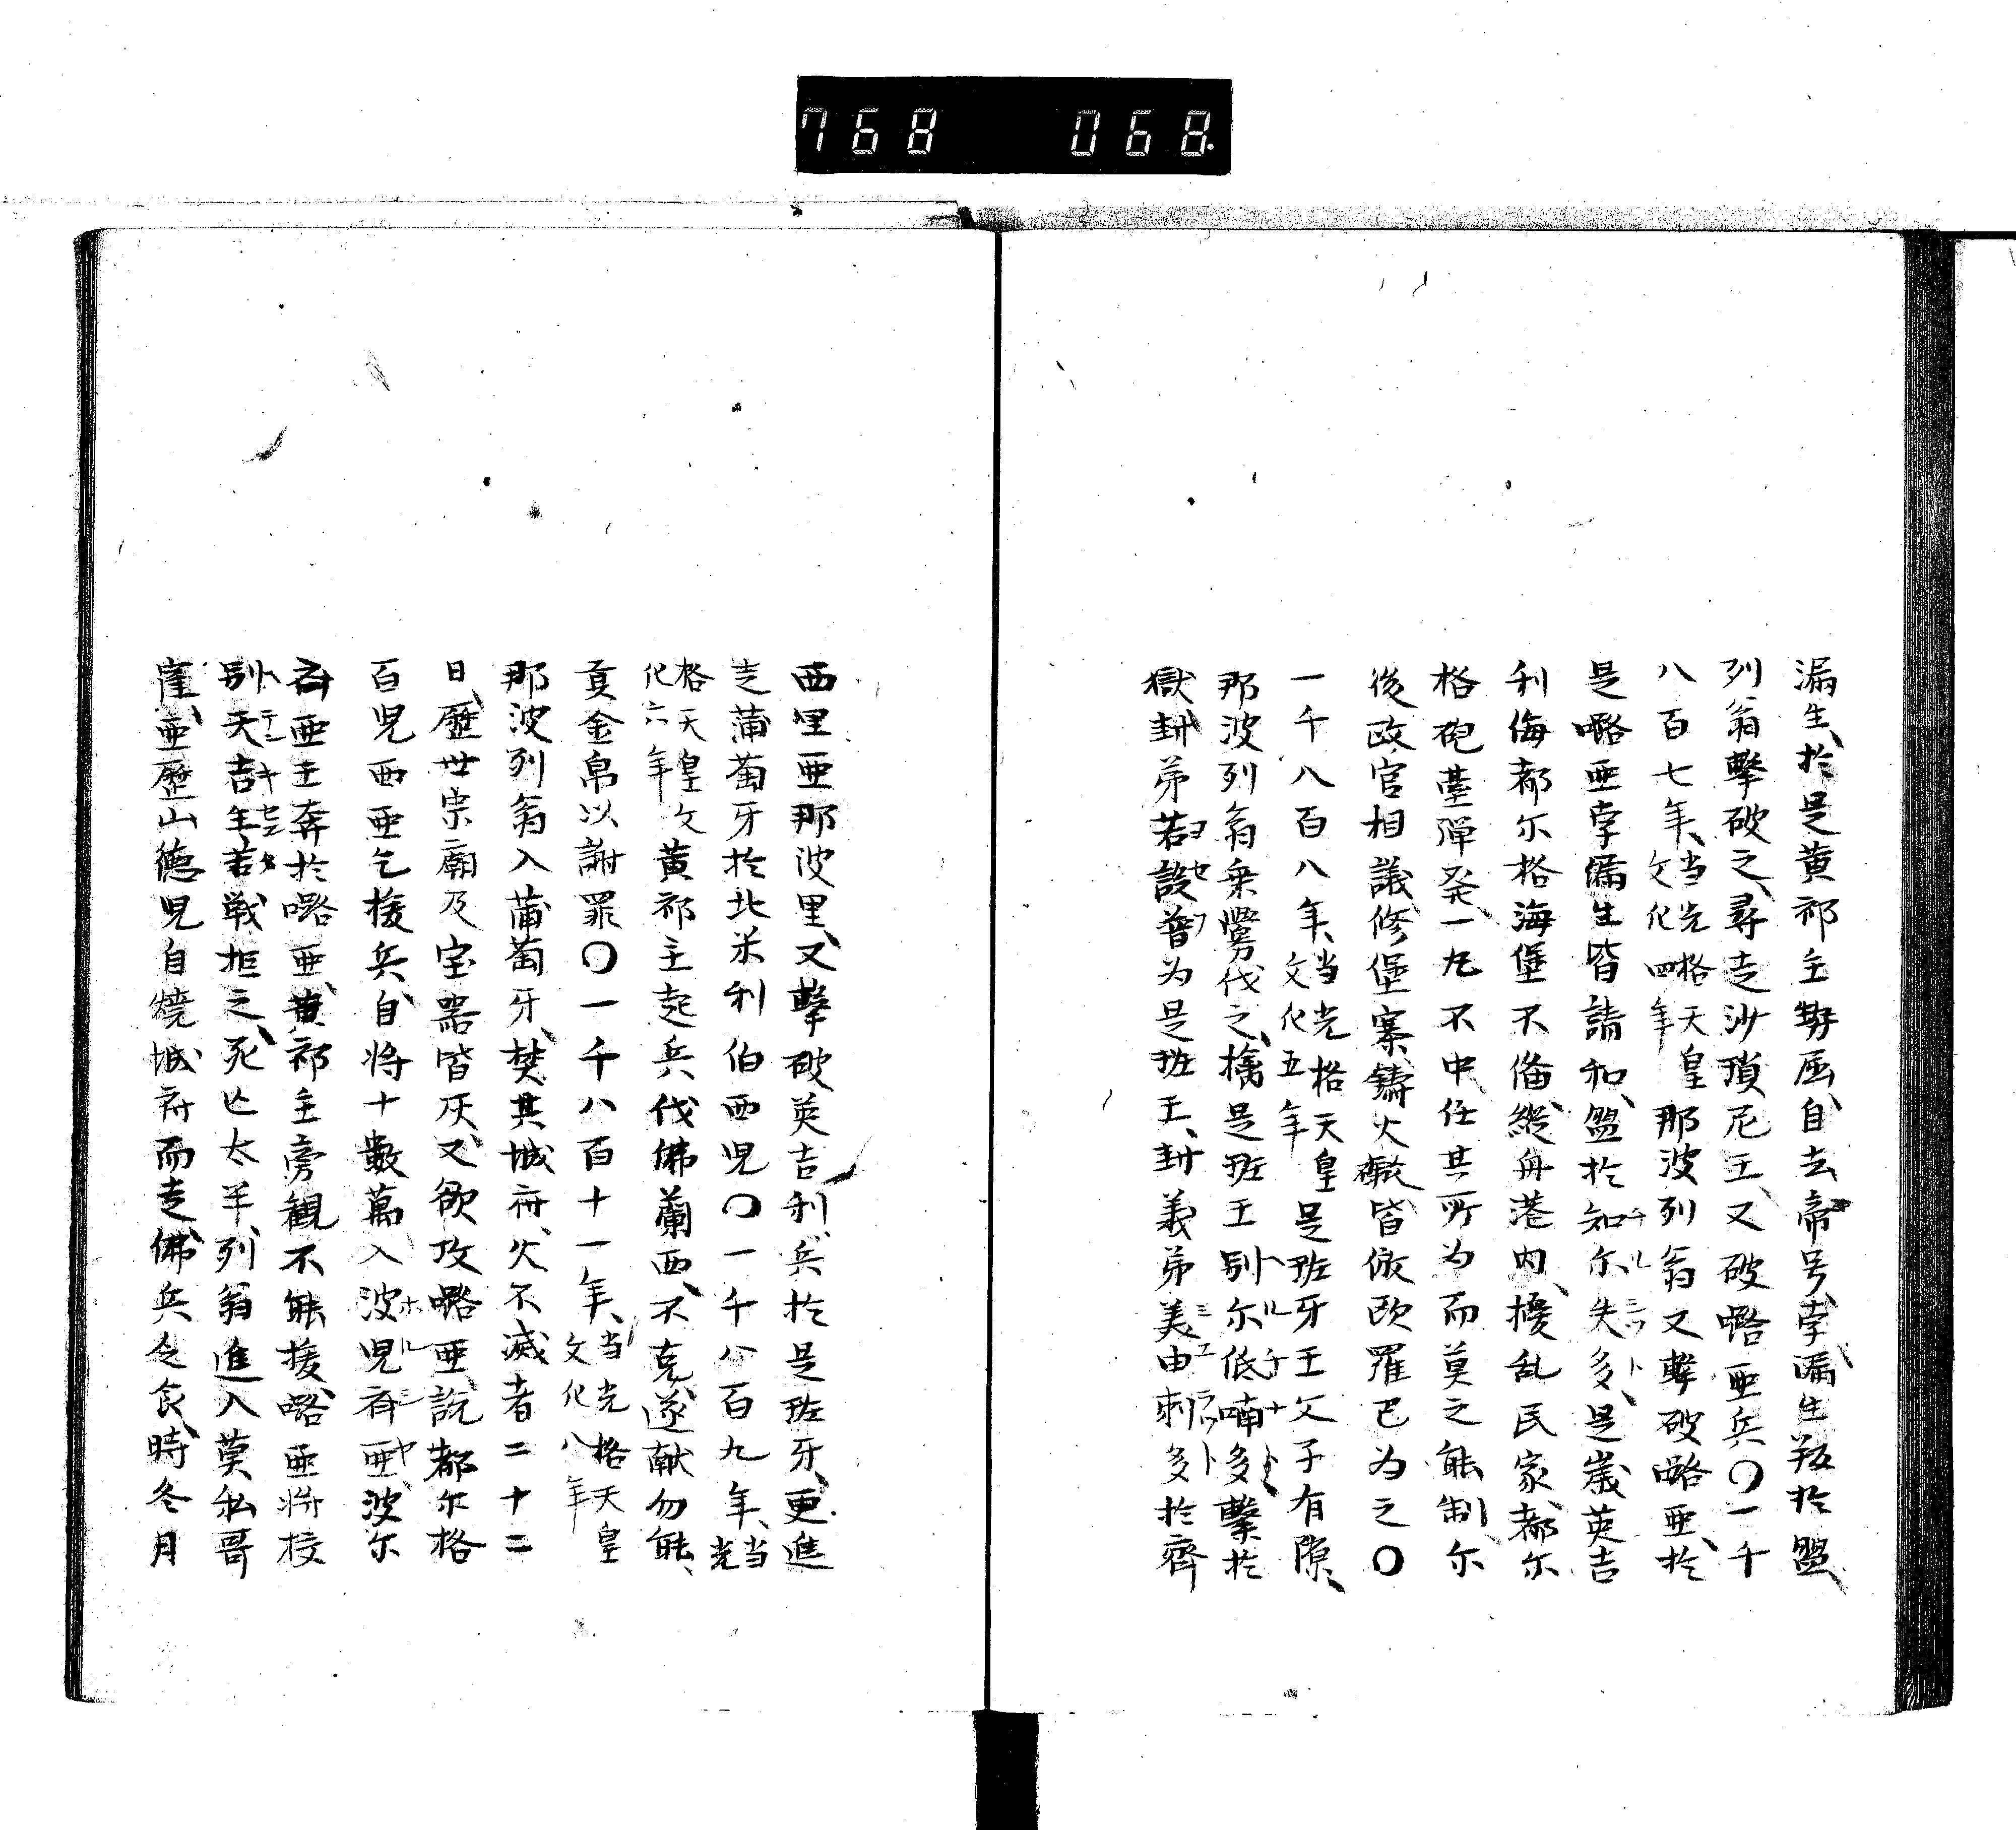 768 068
漏生、於是黄祁主勢屈、自去帝号、孛漏生叛於盟、
列翁撃破之、尋走沙瑣尼王、又破噜亜兵〇一千
八百七年、当光格天皇文化四年那波列翁又撃破噜亜、於
是噜亜孛漏生皆請和、盟於知尓失多、是歳英吉
チルシット
利侮都尓格海堡不備、縦舟港内、擾乱民家、都尓
格砲臺弾発一丸不中、任其所為而莫之能制、尓
後政官相議修堡寨、鋳火礟、皆倣欧羅巴為之〇
一千八百八年、当光格天皇文化五年是班牙王父子有隙、
那波列翁乗釁伐之、擒是班王別尓低喃多、撃於
獄、封弟若設普為是班王、封義弟美由刺多於齊
ヨセフ
西里亜那波里、又撃破英吉利兵於是班牙、更進
走蒲萄牙於北米利伯西児〇一千八百九年、当光
格天皇文化六年黄祁主起兵伐佛蘭西、不克、遂献勿能、
貢金帛以謝罪〇一千八百十一年、当光格天皇文化八年
那波列翁入蒲萄牙、焚其城府、火不滅者二十二
日、歴世宗廟及宝器皆灰、又欲攻噜亜、説都尓格
百児西亜乞援兵、自将十数萬入波児斉亜、波尓
斉亜王奔於噜亜、黄祁主旁観不能援、噜亜将校
別天吉生、苦戦拒之、死亡太半、列翁進入莫私哥
崖、亜歴山徳児自焼城府而走、佛兵乏食、時冬月